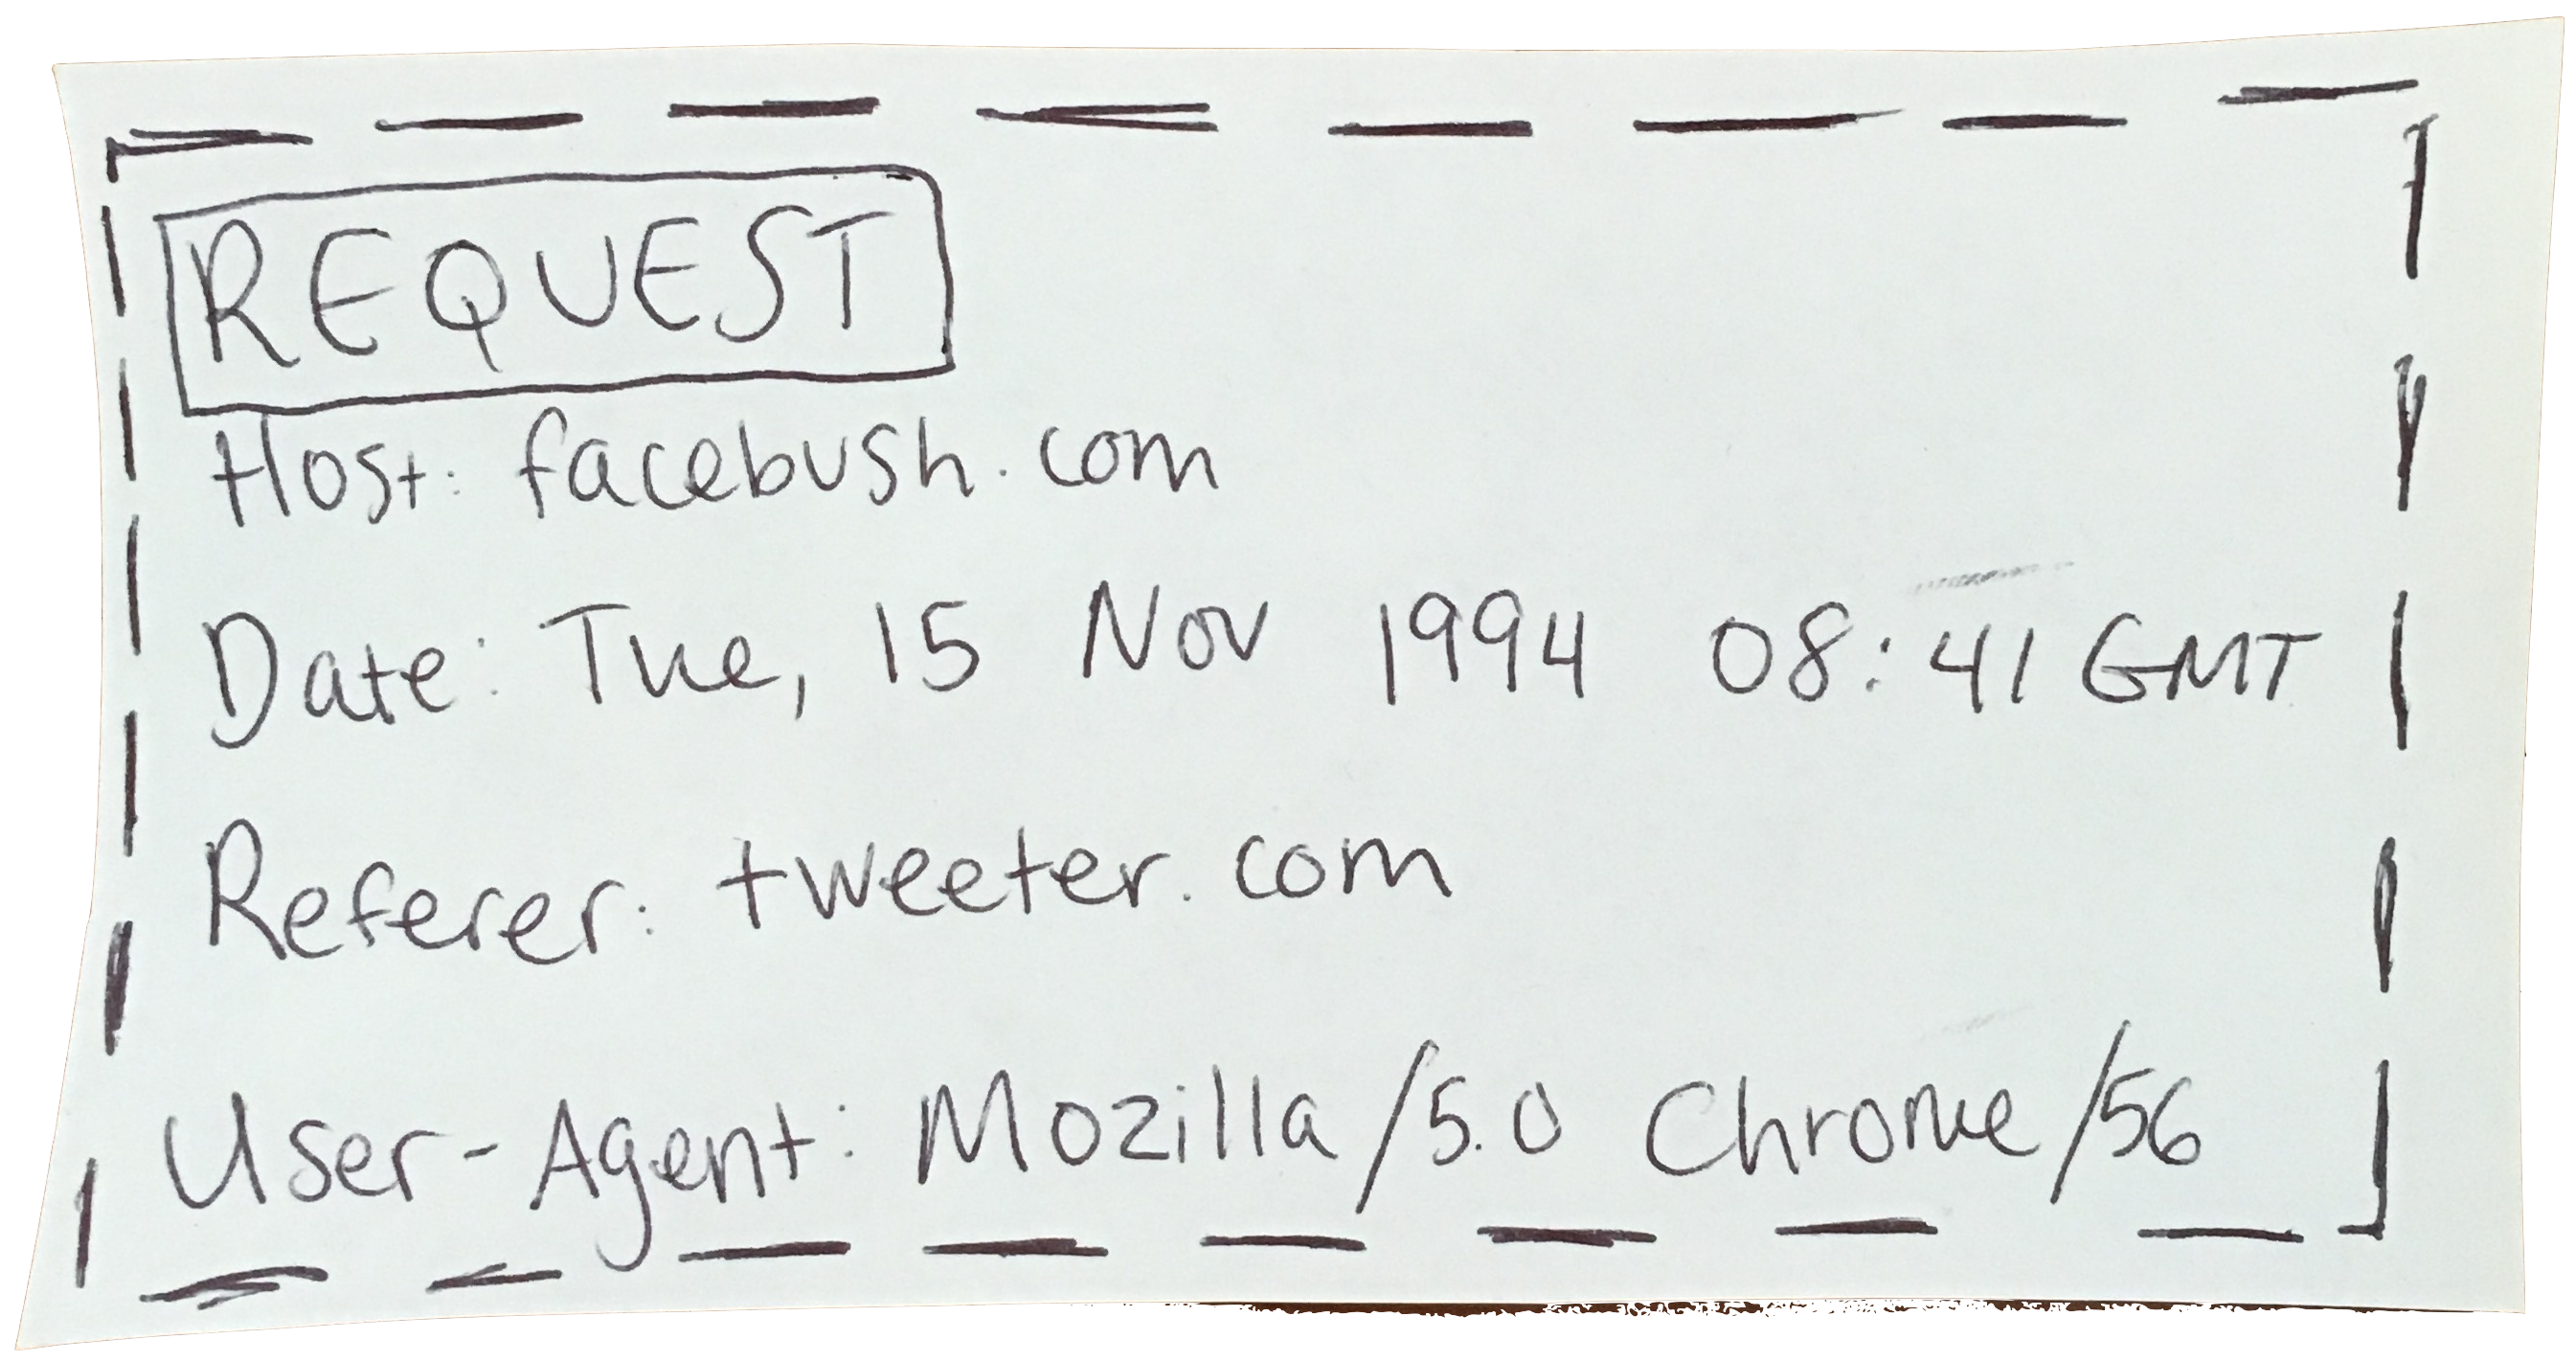 REQUEST
Host: facebush.com
Date: Tue, 15 Nov 1994 08:41 GMT
Referer: tweeter.com
User-Agent: Mozilla/5.0 Chrome/56